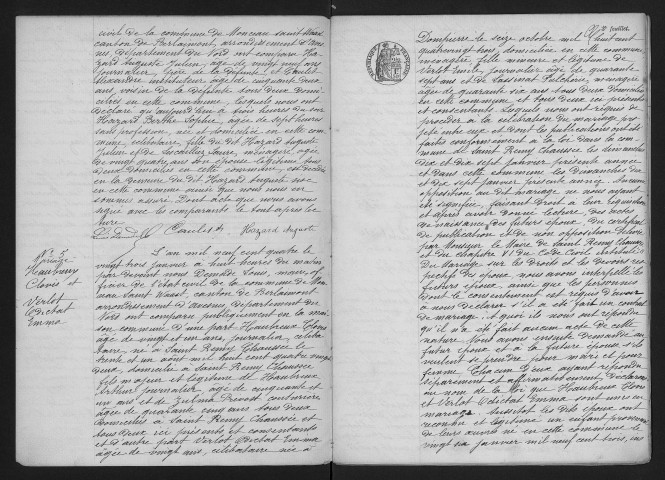 civil de la commune de Monceau Saint Waast
canton de Berlaimont, arrondissement d'Aves
nes, département du Nord ont comparu Ha
zard Auguste Julien, âgé de vingt sept ans
journalier, père de la défunte et Caulet
instituteur âgé de cinquante deux
ans voisin de la défunte tous deux domi
ciliés en cette commune, lesquels nous ont
déclaré qu'aujourd'hui à heures du soir
Hazard Berthe Sophie, âgée de sept heures
sans profession, née et domiciliée en cette com
mune, célibataire, fille du dit Hazard Auguste
Julien et de Laure, ménagère âgée
de vingt quatre ans son épouse légitime tous
deux domiciliés en cette commune, est décédée
en la demeure du dit Hazard Auguste sise
en cette commune ainsi que nous nous en
sommes assuré. Dont acte que nous avons
signé avec les comparants le tout après lec
ture
Caulet Hazard Auguste
N° 5
Mariage
Haubreux
Clovis et
Verlot
Odebat
Emma
L'an mil neuf cent quatre le
vingt trois janvier à huit heures du matin
par devant nous Demade Louis, maire, of
ficier de l'état civil de la commune de Mon
ceau Saint Waast, canton de Berlaimont
arrondissement d'Avesnes département du
Nord ont comparu publiquement en la mai
son commune d'une part Haubreux Clovis
âgé de vingt et un ans, journalier, céliba
taire, né à Saint Remy Chaussée le
trente et un août mil huit cent quatre vingt
deux, domicilié à Saint Remy Chaussée
fils majeur et légitime de Haubreux
Arthur journalier âgé de cinquante et
un ans et de Zulma Prévost couturière
âgée de quarante cinq ans tous deux
domiciliés à Saint Remy Chaussée et
tous deux ici présents et consentants
et d'autre part Verlot Odebat Emma
âgée de vingt ans, célibataire née à
feuillet.
Dompierre le seize octobre mil huit cent
quatrevingt trois, domiciliée en cette commune
ménagère, fille mineure et légitime de
Verlot Emile, journalier âgé de quarante
sept ans et de ménagère
âgée de quarante six ans tous deux domiciliés
en cette commune et tous deux ici présents
et consentants. Lesquels nous ont requis de
procéder à la célébration du mariage pro
jeté entre eux et dont les publications ont été
faites conformément à la loi dans la com
mune de Saint Remy Chaussée les dimanches
dix et dix sept janvier présente année
et dans cette commune les dimanches dix
et dix sept janvier présente année. Aucune
opposition au dit mariage ne nous ayant
été signifiée, faisant droit à leur réquisition
et après avoir donné lecture, des actes
de naissance des futurs époux, du certificat
de publication et de non opposition délivré
par Monsieur le Maire de Saint Remy Chaussée
et du chapitre VI du Code Civil intitulé:
Du Mariage sur les Droits et les devoirs res
pectifs des époux, nous avons interpellé les
futurs époux, ainsi que les personnes
dont le consentement est requis d'avoir
à nous déclarer s'il a été fait un contrat
de mariage, à quoi ils nous ont répondu
qu'il n'a été fait aucun acte de cette
nature. Nous avons ensuite demandé au
futur époux et à la future épouse s'ils
veulent se prendre pour mari et pour
femme. Chacun d'eux ayant répondu
séparément et affirmativement, déclarons
au nom de la loi que Haubreux Clovis
et Verlot Odebat Emma sont unis en
mariage. Aussitôt les dits époux ont
reconnu et légitimé un enfant provenu
de leurs œuvres né en cette commune le
vingt six janvier mil neuf cent trois, ins